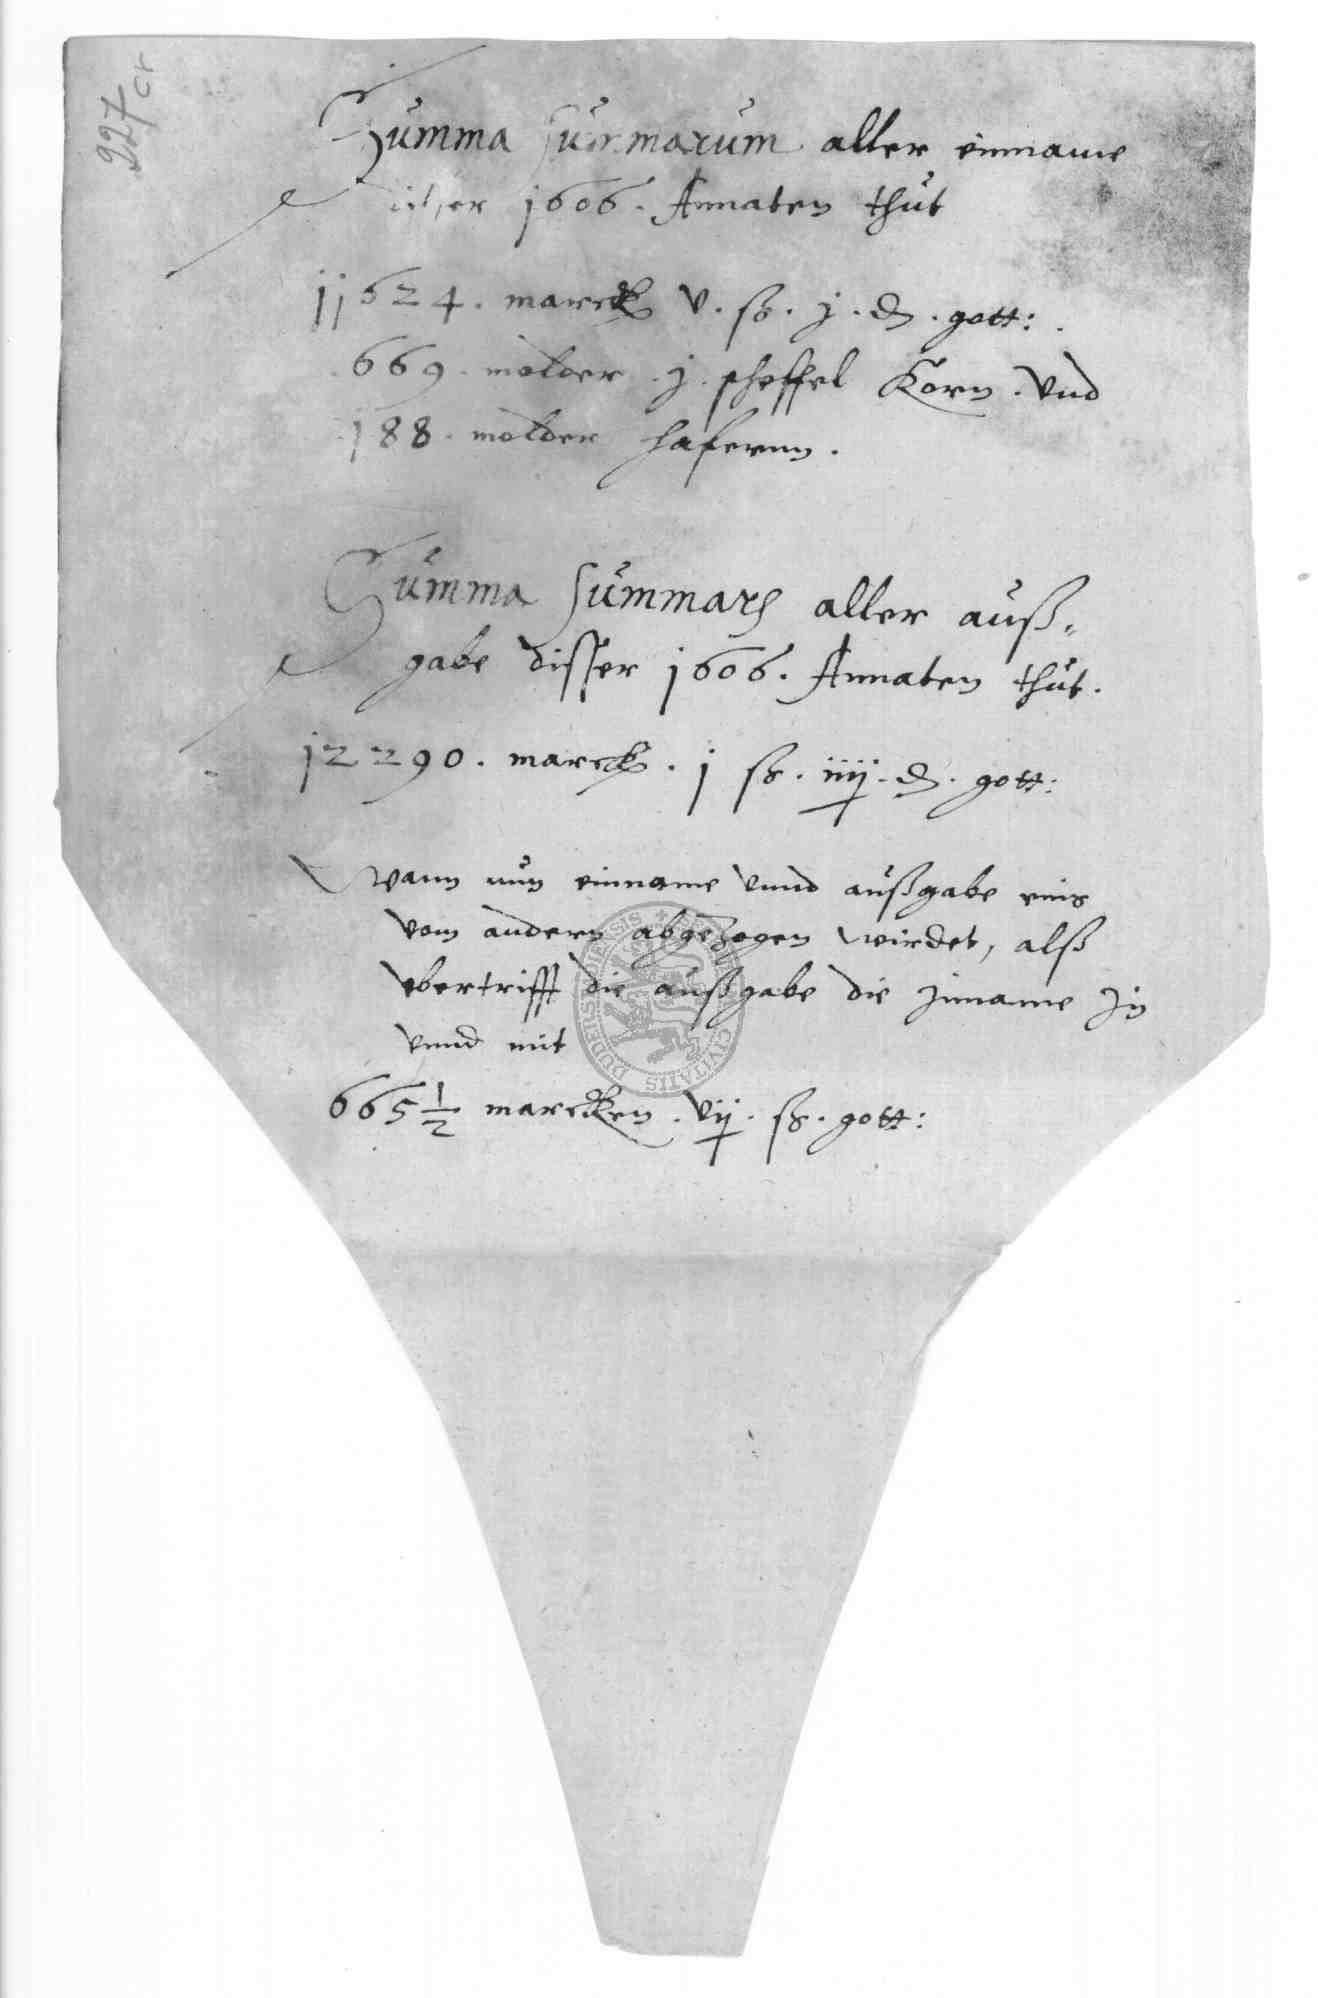 227 cr
Summa Summarum aller einname
disser 1606. Annaten thut
11624. marck v. ß. j. d. gott:
669. molder. j. scheffel Korn. vnd
188. molder hafernn.
Summa Summar͠ aller auß-
gabe disser 1606. Annaten thut.
12290. marck. j ß. iiij. d. gott:
Wann nun einname vnnd außgabe eins
vom andern abgezogen wirdet, alß
vbertrifft die außgabe die Inname In
vnnd mit
665 1/2 marcken. vij. ß. gott:
CIVITATIS DUDERSTADIENSIS